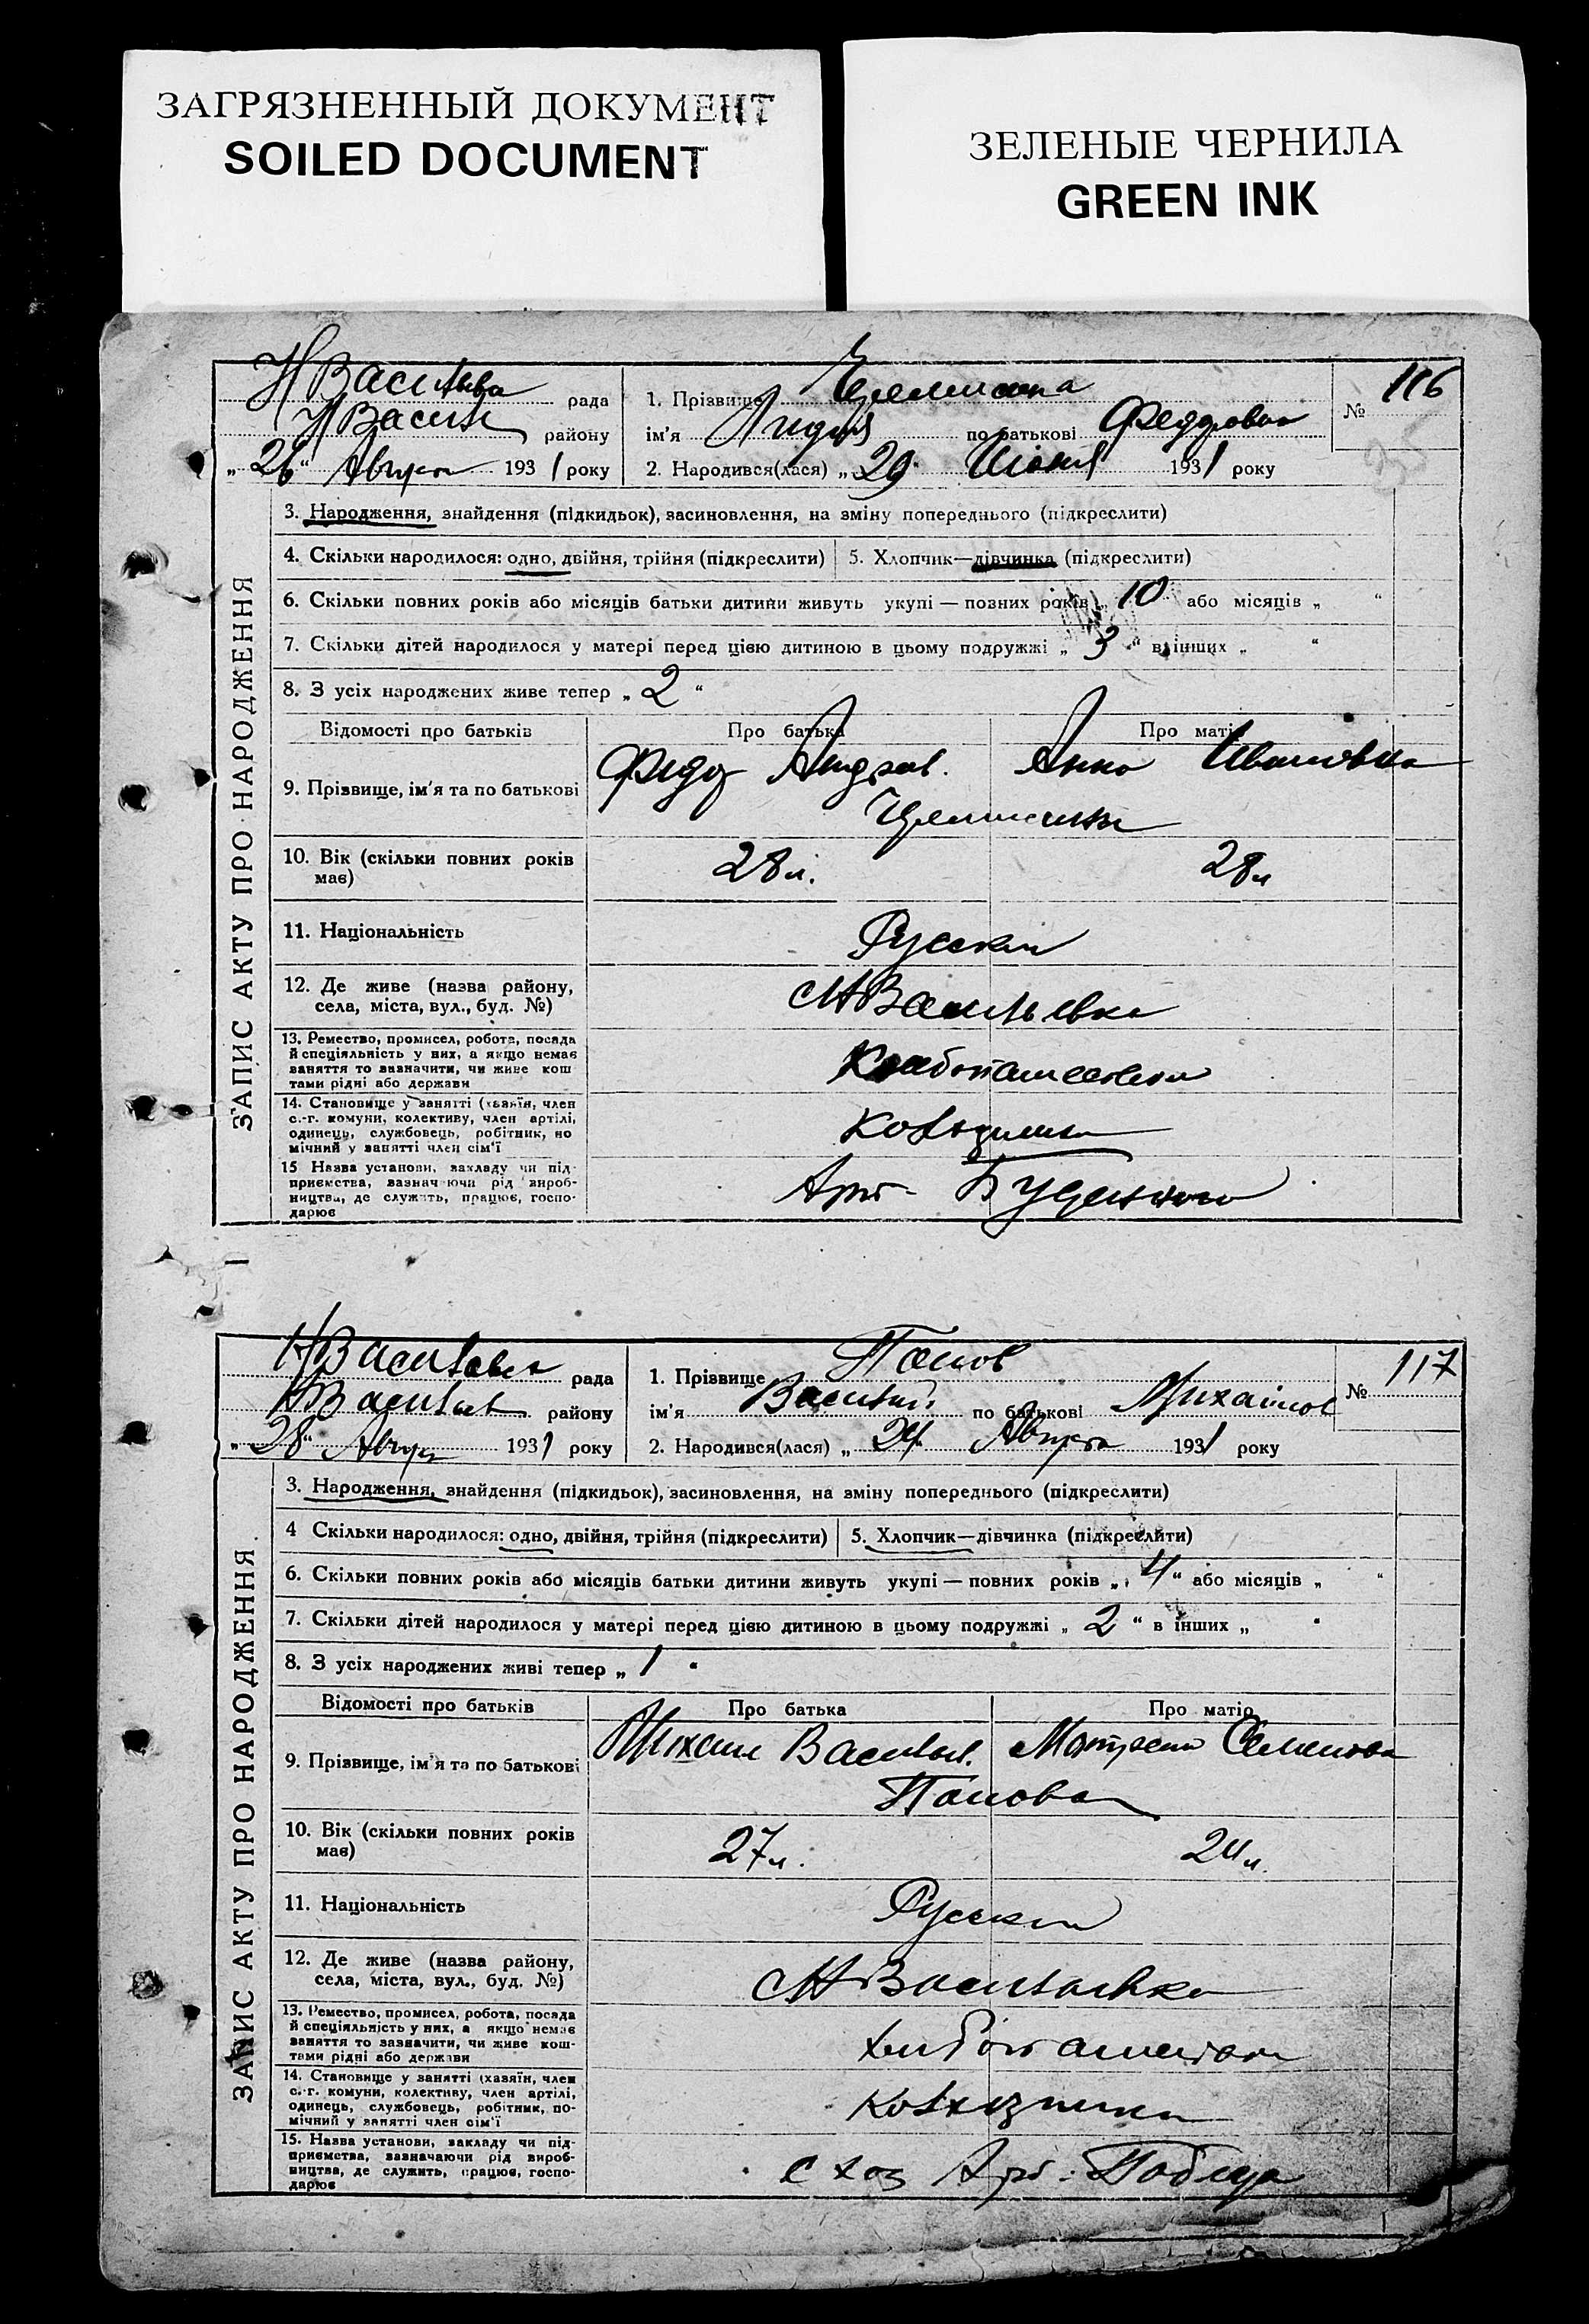 ЗАГРЯЗНЕННЫЙ ДОКУМЕНТ
SOILED DOCUMENT
ЗЕЛЕНЫЕ ЧЕРНИЛА
GREEN INK
рада
району
„ 26 “ Августа 1931 року
1. Прізвище
ім'я Лидия по батькові Федоровна
2. Народився(лася) „ 29 “ Июня 1931 року
№ 116
35
ЗАПИС АКТУ ПРО НАРОДЖЕННЯ
3. Народження, знайдення (підкидьок), засиновлення, на зміну попереднього (підкреслити)
4. Скільки народилося: одно, двійня, трійня (підкреслити) 5. Хлопчик—дівчинка (підкреслити)
6. Скільки повних років або місяців батьки дитини живуть укупі — повних років „ 10 “ або місяців „ “
7. Скільки дітей народилося у матері перед цією дитиною в цьому подружжі „ 3 “ в інших „ “
8. З усіх народжених живе тепер „ 2 “
Відомості про батьків Про батька Про матір
9. Прізвище, ім'я та по батькові Федор Андреев. Анна Ивановна
10. Вік (скільки повних років має) 28 л. 28 л
11. Національність Русски
12. Де живе (назва району, села, міста, вул., буд. №) Н Васильевка
13. Ремество, промисел, робота, посада й спеціяльність у них, а якщо немає заняття то зазначити, чи живе коштами рідні або держави
14. Становище у занятті (хазяїн, член с.-г. комуни, колективу, член артілі, одинець, службовець, робітник, помічний у занятті член сім'ї
15 Назва установи, закладу чи підприємства, зазначаючи рід виробництва, де служить, працює, господарює Арт. Буденного
Н Васильевка рада
Н Васильев району
„ 28 “ Август 1931 року
1. Прізвище Панов
ім'я Василий по батькові Михайлов
2. Народився(лася) „ 24 “ Августа 1931 року
№ 117
ЗАПИС АКТУ ПРО НАРОДЖЕННЯ
3. Народження, знайдення (підкидьок), засиновлення, на зміну попереднього (підкреслити)
4 Скільки народилося: одно, двійня, трійня (підкреслити) 5. Хлопчик—дівчинка (підкреслити)
6. Скільки повних років або місяців батьки дитини живуть укупі — повних років „ 4 “ або місяців „ “
7. Скільки дітей народилося у матері перед цією дитиною в цьому подружжі „ 2 “ в інших „ “
8. З усіх народжених живі тепер „ 1 “
Відомості про батьків Про батька Про матір
9. Прізвище, ім'я та по батькові Михаил Васильев. Матрена Семенова
Панова
10. Вік (скільки повних років має) 27 л. 24 л.
11. Національність Русски
12. Де живе (назва району, села, міста, вул., буд. №) Н Васильевка
13. Ремество, промисел, робота, посада й спеціяльність у них, а якщо немає заняття то зазначити, чи живе коштами рідні або держави
14. Становище у занятті (хазяїн, член с.-г. комуни, колективу, член артілі, одинець, службовець, робітник, помічний у занятті член сім'ї
15. Назва установи, закладу чи підприємства, зазначаючи рід виробництва, де служить, працює, господарює с хоз Арт. Победа